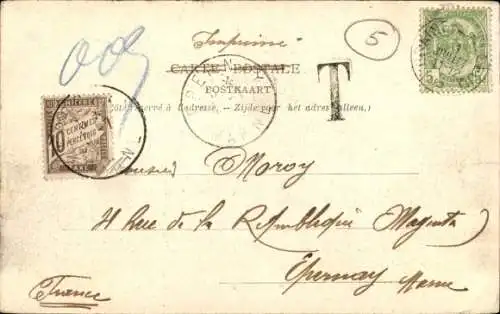 Imprimé
5
CARTE POSTALE
POSTKAART
T
(Côté réservé à l'adresse. — Zijde voor het adres alleen.)
10
CENTIMES
À PERCEVOIR
EPERNAY
MARNE
Monsieur Moroy
21 Rue de la République Magenta
Épernay Marne
France